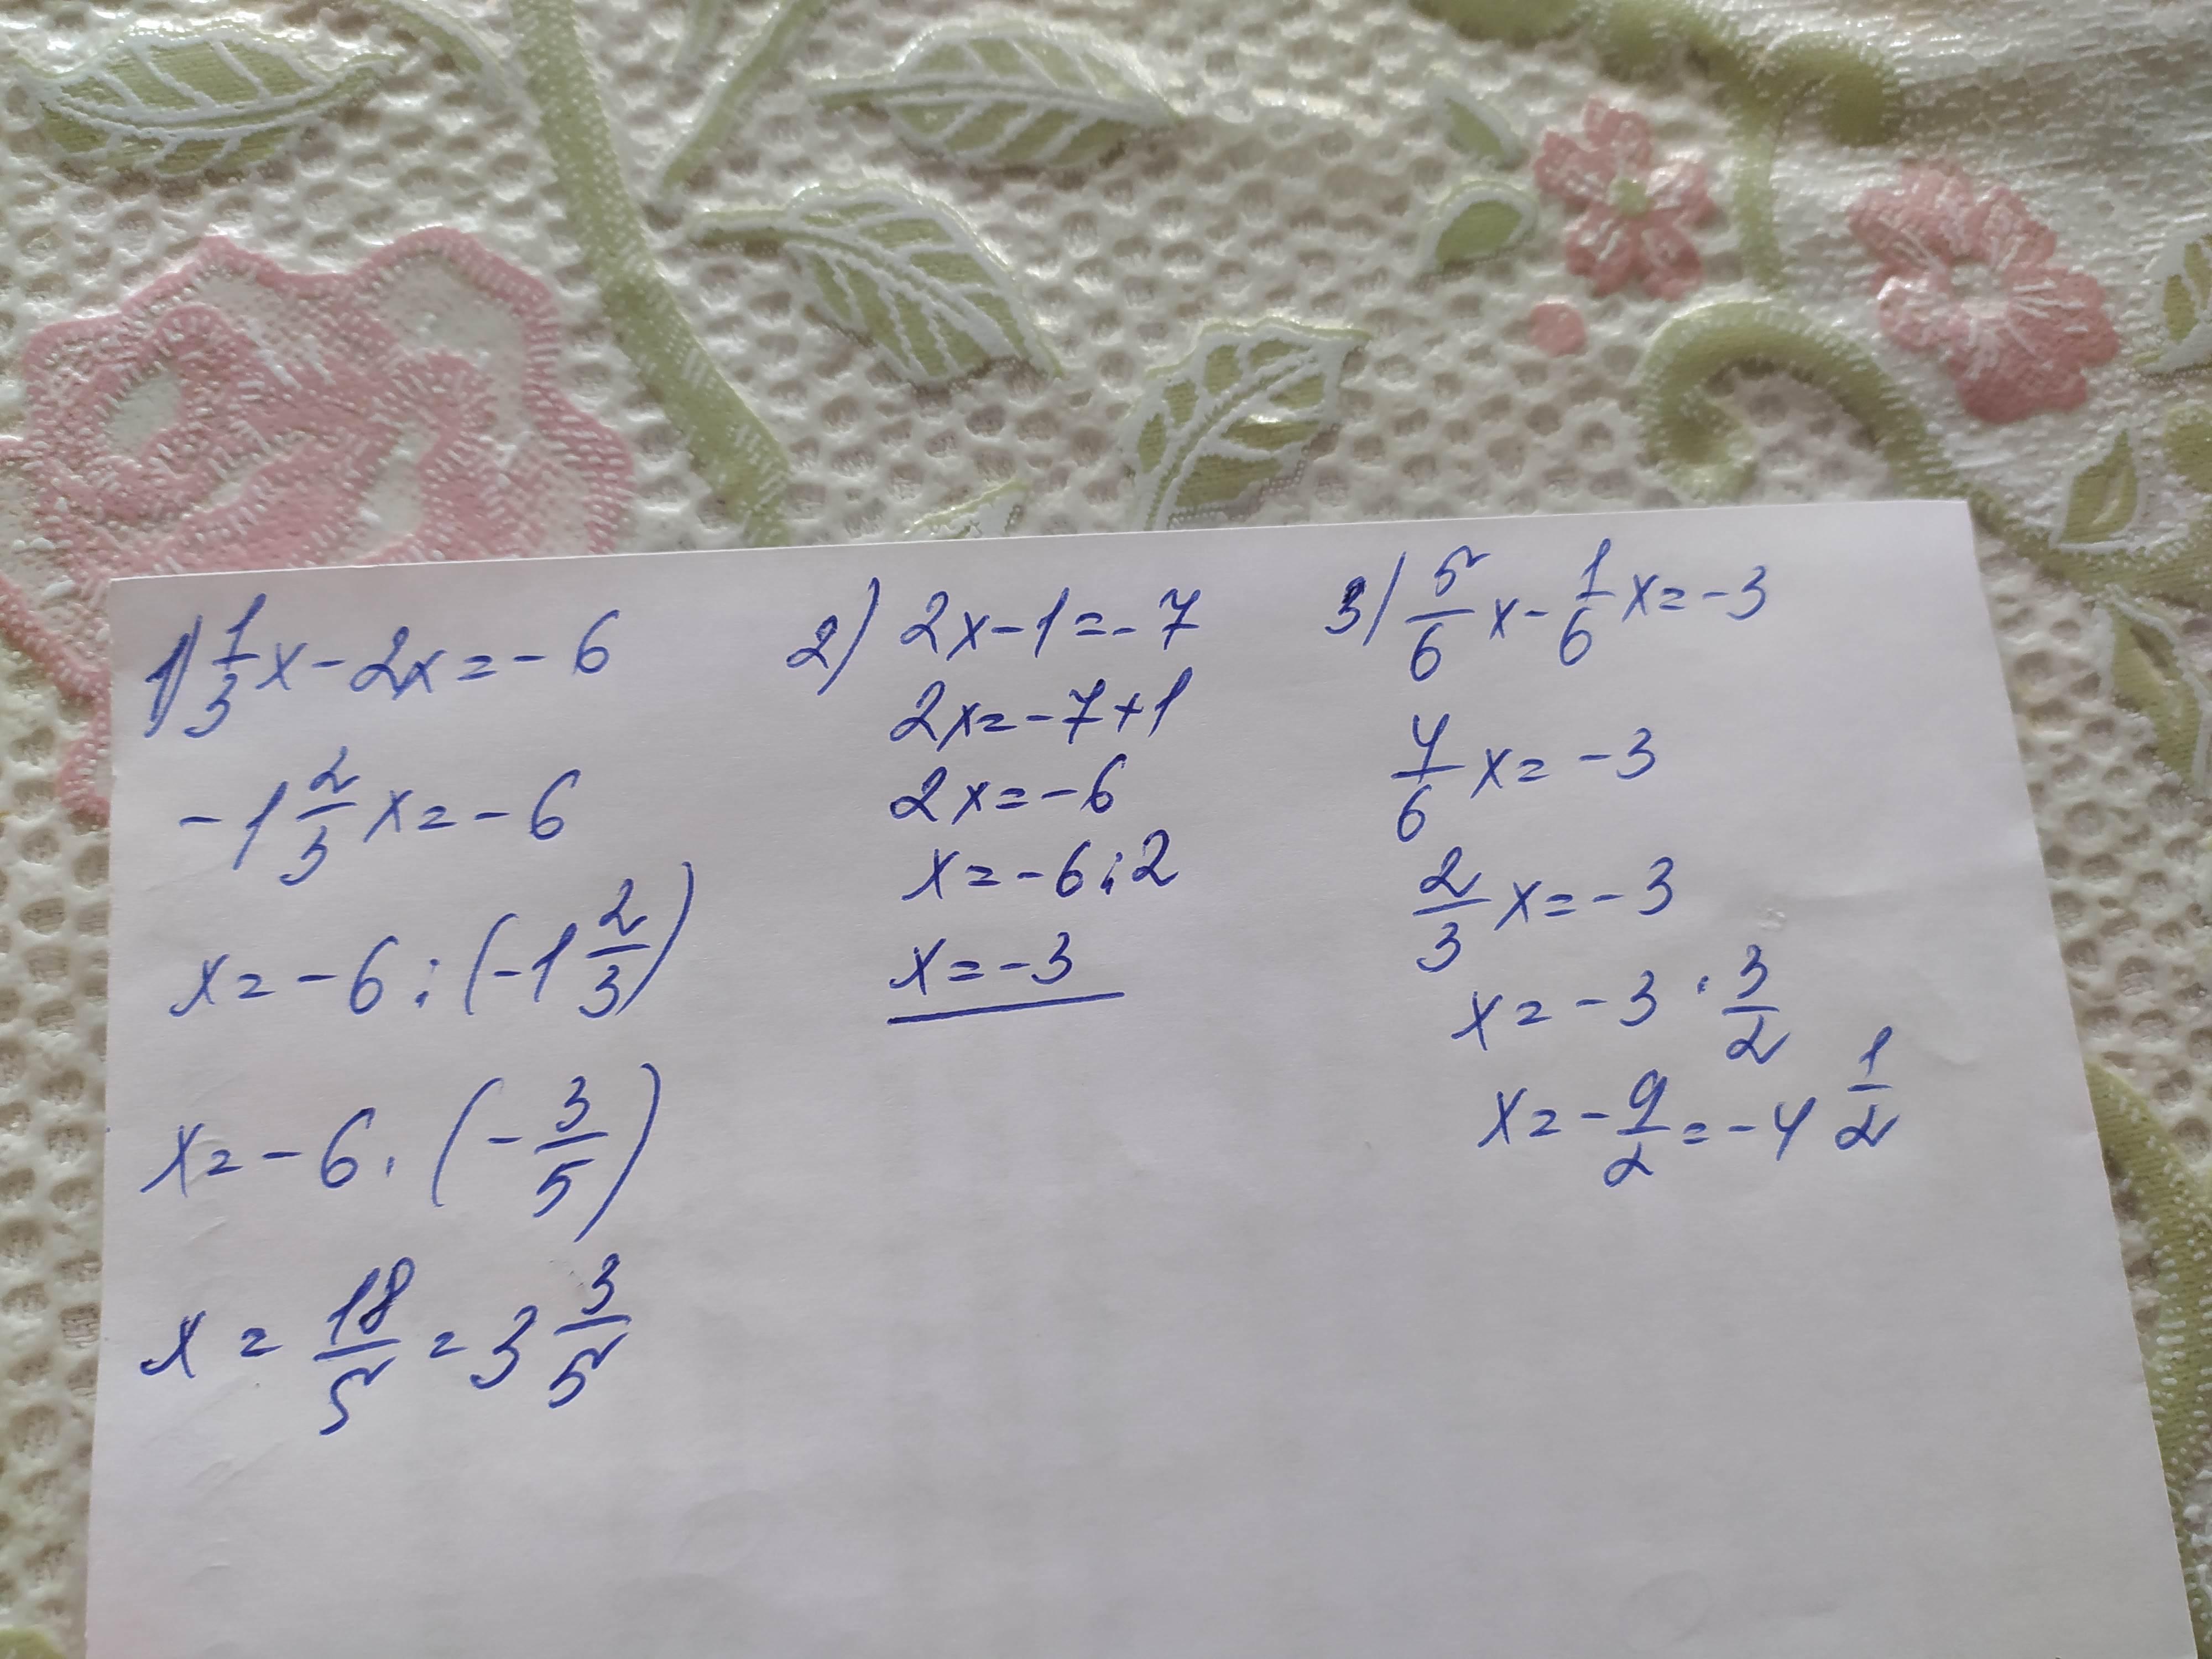 1) 1/3 x - 2x = -6
-1 2/3 x = -6
x = -6 : (-1 2/3)
x = -6 · (-3/5)
x = 18/5 = 3 3/5
2) 2x - 1 = -7
2x = -7 + 1
2x = -6
x = -6 : 2
x = -3
3) 5/6 x - 1/6 x = -3
4/6 x = -3
2/3 x = -3
x = -3 · 3/2
x = -9/2 = -4 1/2